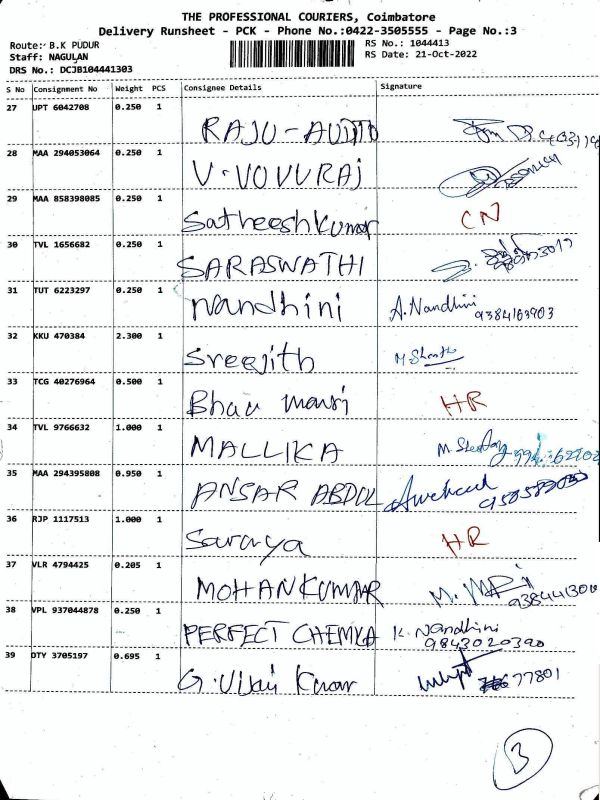 THE PROFESSIONAL COURIERS, Coimbatore
Delivery Runsheet - PCK - Phone No.:0422-3505555 - Page No.:3
Route: B.K PUDUR
RS No.: 1044413
Staff: NAGULAN
RS Date: 21-Oct-2022
DRS No.: DCJB104441303
S No Consignment No Weight PCS Consignee Details Signature
27 UPT 6042708 0.250 1 RAJU-AUDITO
28 MAA 294053064 0.250 1 V.VOVURAJ
29 MAA 858398085 0.250 1 Satheeshkumar CN
30 TVL 1656682 0.250 1 SARASWATHI
31 TUT 6223297 0.250 1 Nandhini A.Nandhini
9384163903
32 KKU 470384 2.300 1 Sreejith
33 TCG 40276964 0.500 1 HR
34 TVL 9766632 1.000 1 MALLIKA
35 MAA 294395808 0.950 1 ANSAR ABDUL
36 RJP 1117513 1.000 1 Saranya HR
37 VLR 4794425 0.205 1 MOHANKUMAR
38 VPL 937044878 0.250 1 PERFECT CHEMKA K. Nandhini
9843020390
39 DTY 3705197 0.695 1 G. 77801
3